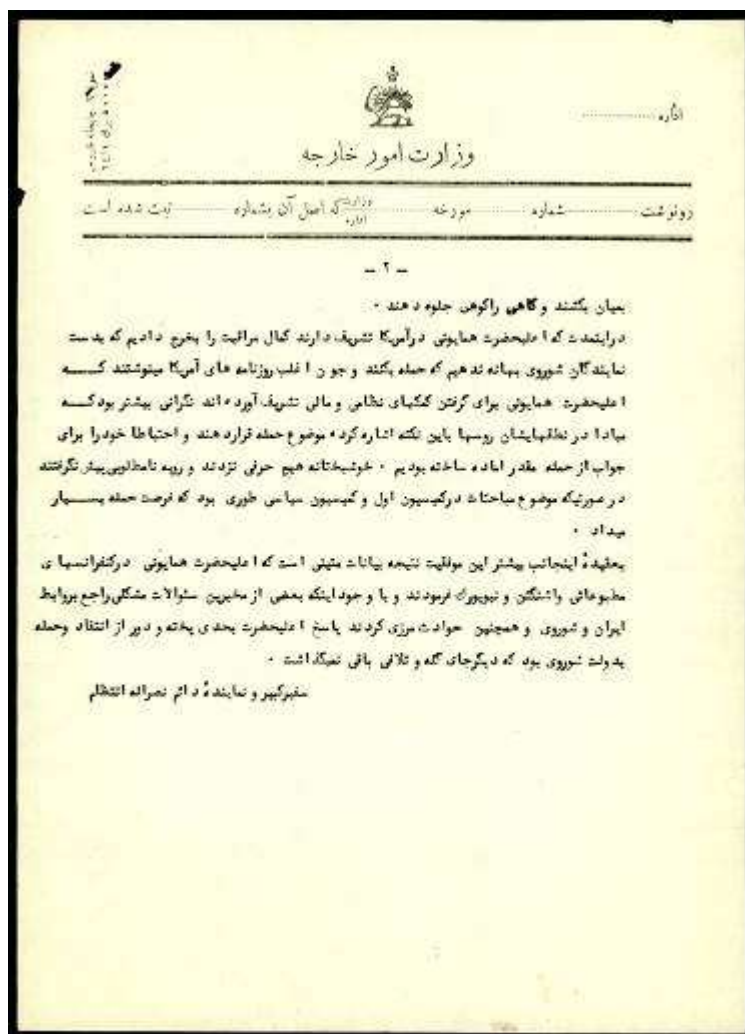 اداره
وزارت امور خارجه
رونوشت شماره مورخه وزارت اداره که اصل آن بشماره ثبت شده است
- ۲ -
بمیان بکشند و گاهی راکوهی جلوه دهند ۰
دراینمدت که اعلیحضرت همایونی درآمریکا تشریف دارند کمال مراقبت را بخرج دادیم که بدست
نمایندگان شوروی بهانه ندهیم که حمله بکنند و چون اغلب روزنامه های آمریکا مینوشتند کـــه
اعلیحضرت همایونی برای گرفتن کمکهای نظامی و مالی تشریف آورده اند نگرانی بیشتر بود کـــه
مبادا در نطقهایشان روسها باین نکته اشاره کرده موضوع حمله قرار دهند و احتیاطا خود را برای
جواب از حمله مقدر اماده ساخته بودیم ۰ خوشبختانه هیچ حرفی نزدند و رویه نامطلوبی پیش نگرفتند
در صورتیکه موضوع مباحثات درکمیسیون اول و کمیسیون سیاسی طوری بود که فرصت حمله بســـیار
میداد ۰
بعقیدهٔ اینجانب بیشتر این موفقیت نتیجه بیانات متینی است که اعلیحضرت همایونی درکنفرانسهای
مطبوعاتی واشنگتن و نیویورک فرمودند و با وجود اینکه بعضی از مخبرین سئوالات مشکلی راجع بروابط
ایران و شوروی و همچنین حوادث مرزی کردند پاسخ اعلیحضرت بحدی پخته و دور از انتقاد وحمله
بدولت شوروی بود که دیگرجای گله و تلافی باقی نمیگذاشت ۰
سفیرکبیر و نمایندهٔ دائم نصراله انتظام